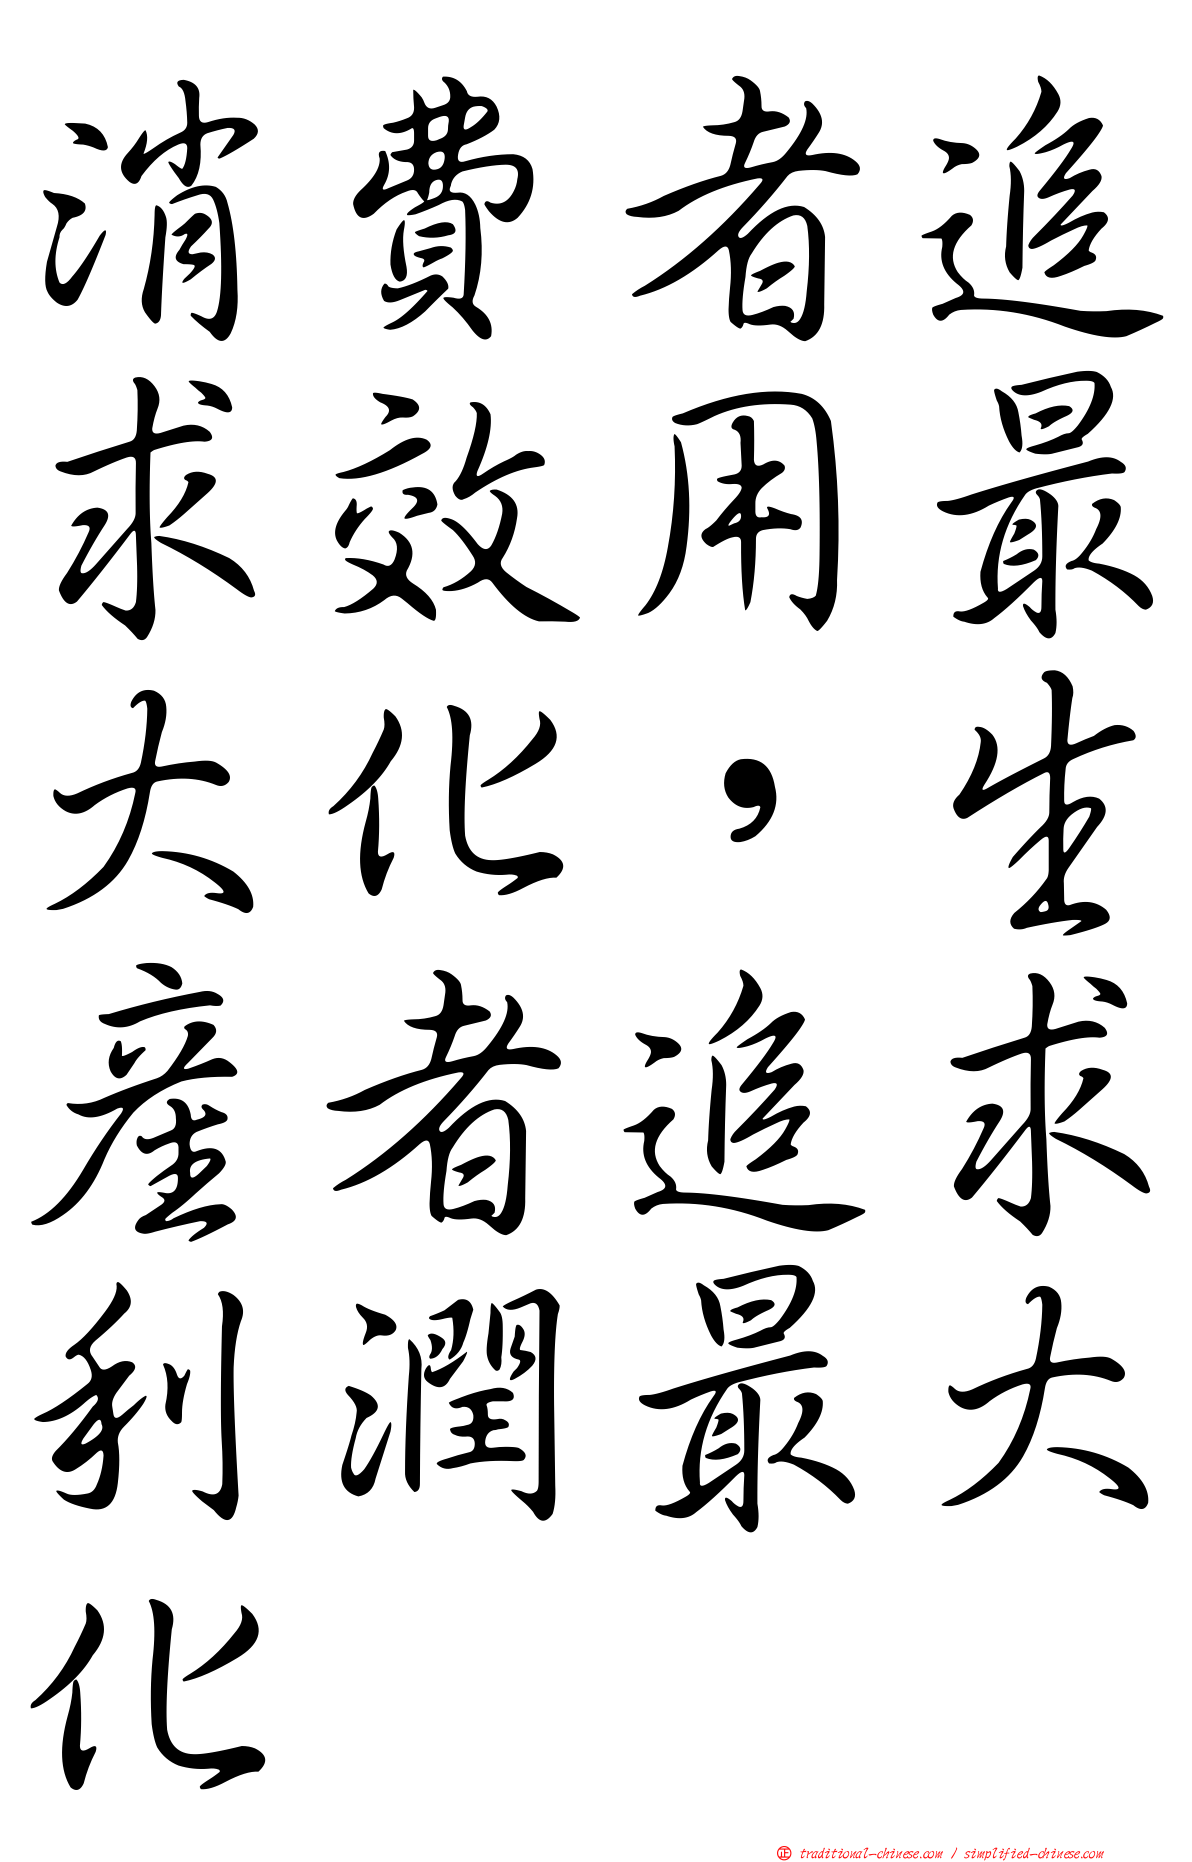 消費者追
求效用最
大化，生
產者追求
利潤最大
化
正 traditional-chinese.com / simplified-chinese.com